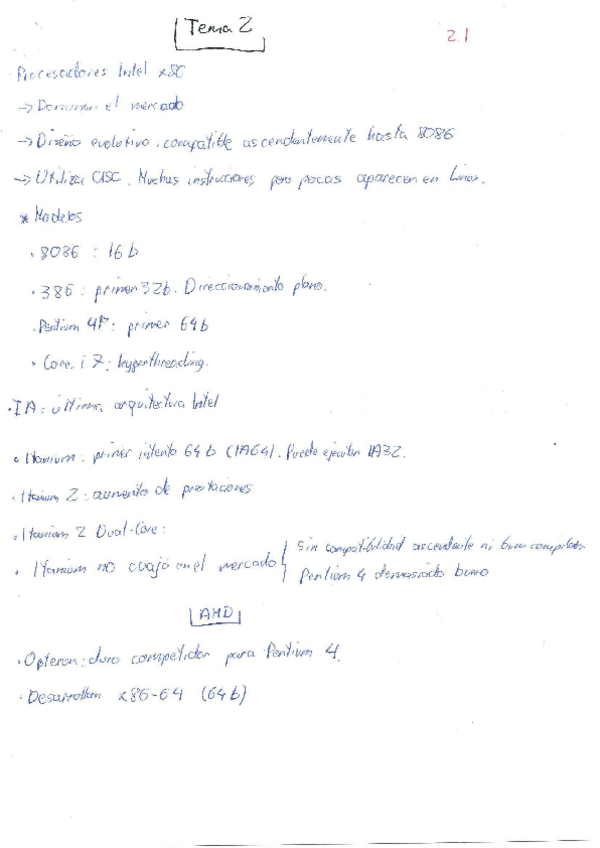 Tema 2
2.1
Procesadores Intel x86
→ Dominan el mercado
→ Diseño evolutivo. compatible ascendentemente hasta 8086
→ Utiliza CISC. Muchas instrucciones pero pocas aparecen en Linux.
* Modelos
· 8086 : 16 b
· 386 : primer 32b. Direccionamiento plano.
· Pentium 4F : primer 64b
· Core i 7 : hyperthreading.
· IA : última arquitectura Intel
· Itanium : primer intento 64 b (IA64). Puede ejecutar IA32.
· Itanium 2 : aumento de prestaciones
· Itanium 2 Dual-Core :
· Itanium no cuajó en el mercado { Sin compatibilidad ascendente ni buen compilador
Pentium 4 demasiado bueno
AMD
· Opteron : duro competidor para Pentium 4.
· Desarrollan x86-64 (64b)